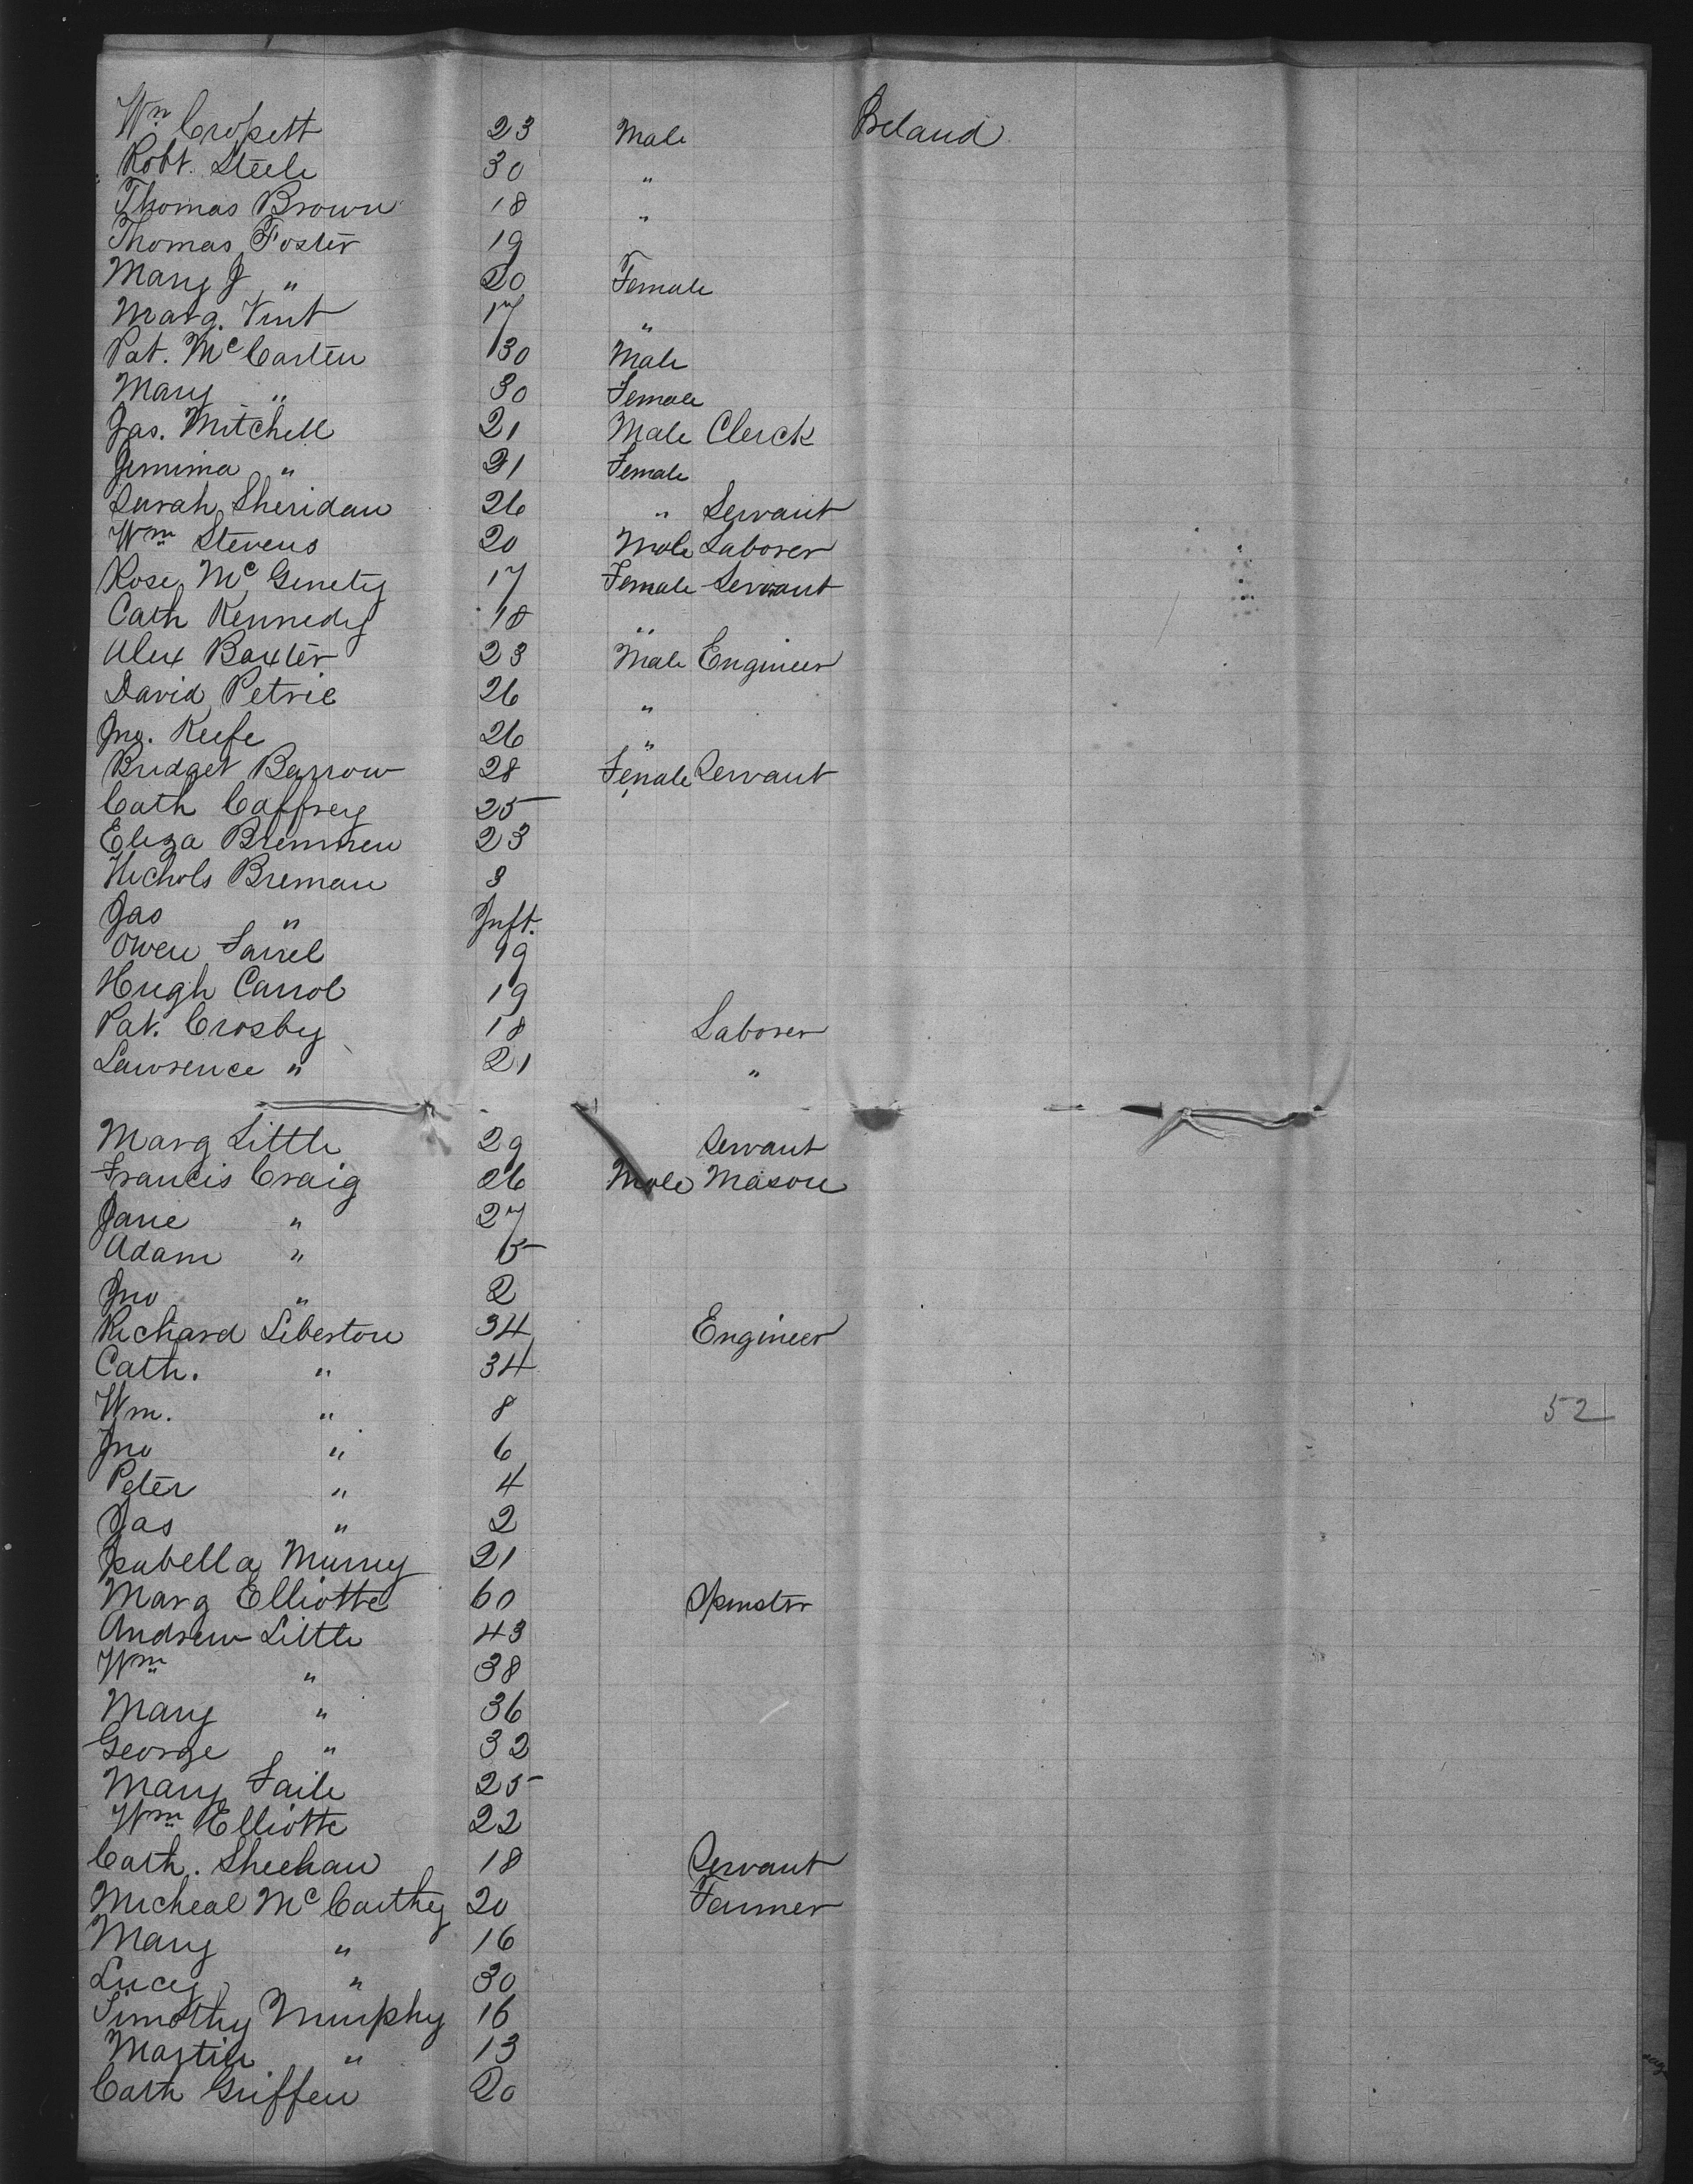 Wm Crosett 23 Male Ireland
Robt. Steele 30 "
Thomas Brown 18 "
Thomas Foster 19
Mary J " 20 Female
Marg. Vint 17 "
Pat. McCarten 30 Male
Mary " 30 Female
Jas. Mitchell 21 Male Clerck
Jemima " 21 Female
Sarah Sheridan 26 " Servant
Wm Stevens 20 Male Laborer
Rose McGinety 17 Female Servant
Cath Kennedy 18 "
Alex Baxter 23 Male Engineer
David Petrie 26 "
Jno. Keefe 26 "
Bridget Barrow 28 Female Servant
Cath Caffrey 25
Eliza Brennen 23
Nichols Brenan 3
Jas " Inft.
Owen Farrel 19
Hugh Carrol 19
Pat. Crosby 18 Laborer
Lawrence " 21 "
Marg Little 29 Servant
Francis Craig 26 Male Mason
Jane " 27
Adam " 5
Jno " 2
Richard Liberton 34 Engineer
Cath. " 34
Wm. " 8 52
Jno " 6
Peter " 4
Jas " 2
Isabella Murry 21
Marg Elliotte 60 Spinster
Andrew Little 43
Wm " 38
Mary " 36
George " 32
Mary Faile 25
Wm Elliotte 22
Cath. Sheehan 18 Servant
Micheal McCarthy 20 Farmer
Mary " 16
Lucy " 30
Timothy Murphy 16
Martin " 13
Cath Griffen 20